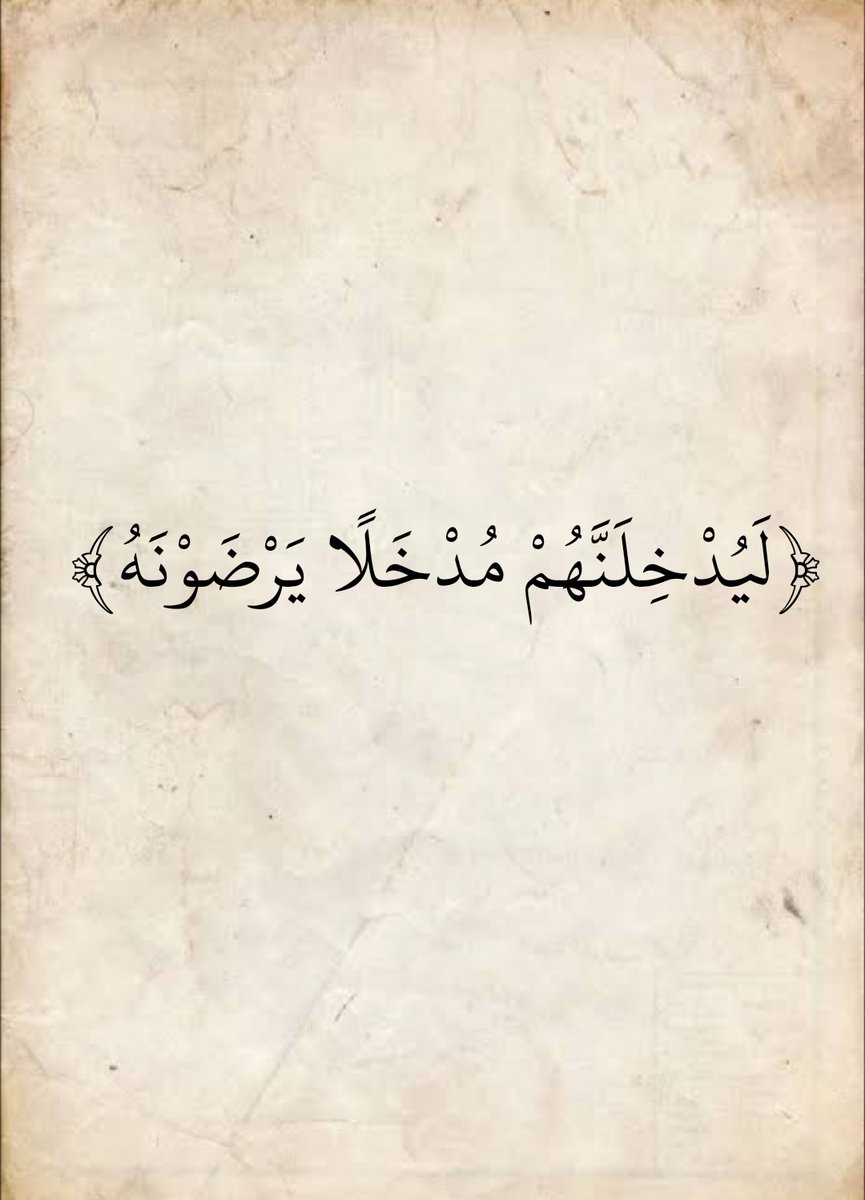 ﴿لَيُدْخِلَنَّهُمْ مُدْخَلًا يَرْضَوْنَهُ﴾